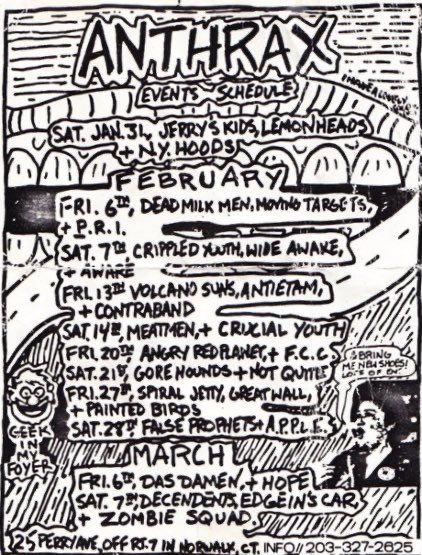 ANTHRAX
EVENTS SCHEDULE
I HOPE A LOVELY
SAT. JAN. 31, JERRY'S KIDS, LEMONHEADS
+ N.Y. HOODS
FEBRUARY
FRI. 6TH, DEAD MILK MEN, MOVING TARGETS,
+ P.R.I.
SAT. 7TH, CRIPPLED YOUTH, WIDE AWAKE,
+ AWARE
FRI. 13TH VOLCANO SUNS, ANTIETAM,
+ CONTRABAND
SAT. 14TH, MEATMEN, + CRUCIAL YOUTH
FRI. 20TH ANGRY RED PLANET, + F.C.C.
SAT. 21ST, GORE HOUNDS + NOT QUITE
FRI. 27TH, SPIRAL JETTY, GREAT WALL,
+ PAINTED BIRDS
SAT. 28TH FALSE PROPHETS + A.P.P.L.E.
BRING
ME NEW SHOES!
LOTS OF EM.
GEEK
IN
MY
FOYER
MARCH
FRI. 6TH, DAS DAMEN, + HOPE
SAT. 7TH, DECENDENTS, EDGEIN'S CAR,
+ ZOMBIE SQUAD
25 PERRY AVE, OFF RT. 7 IN NORWALK, CT. INFO// 203-327-2625